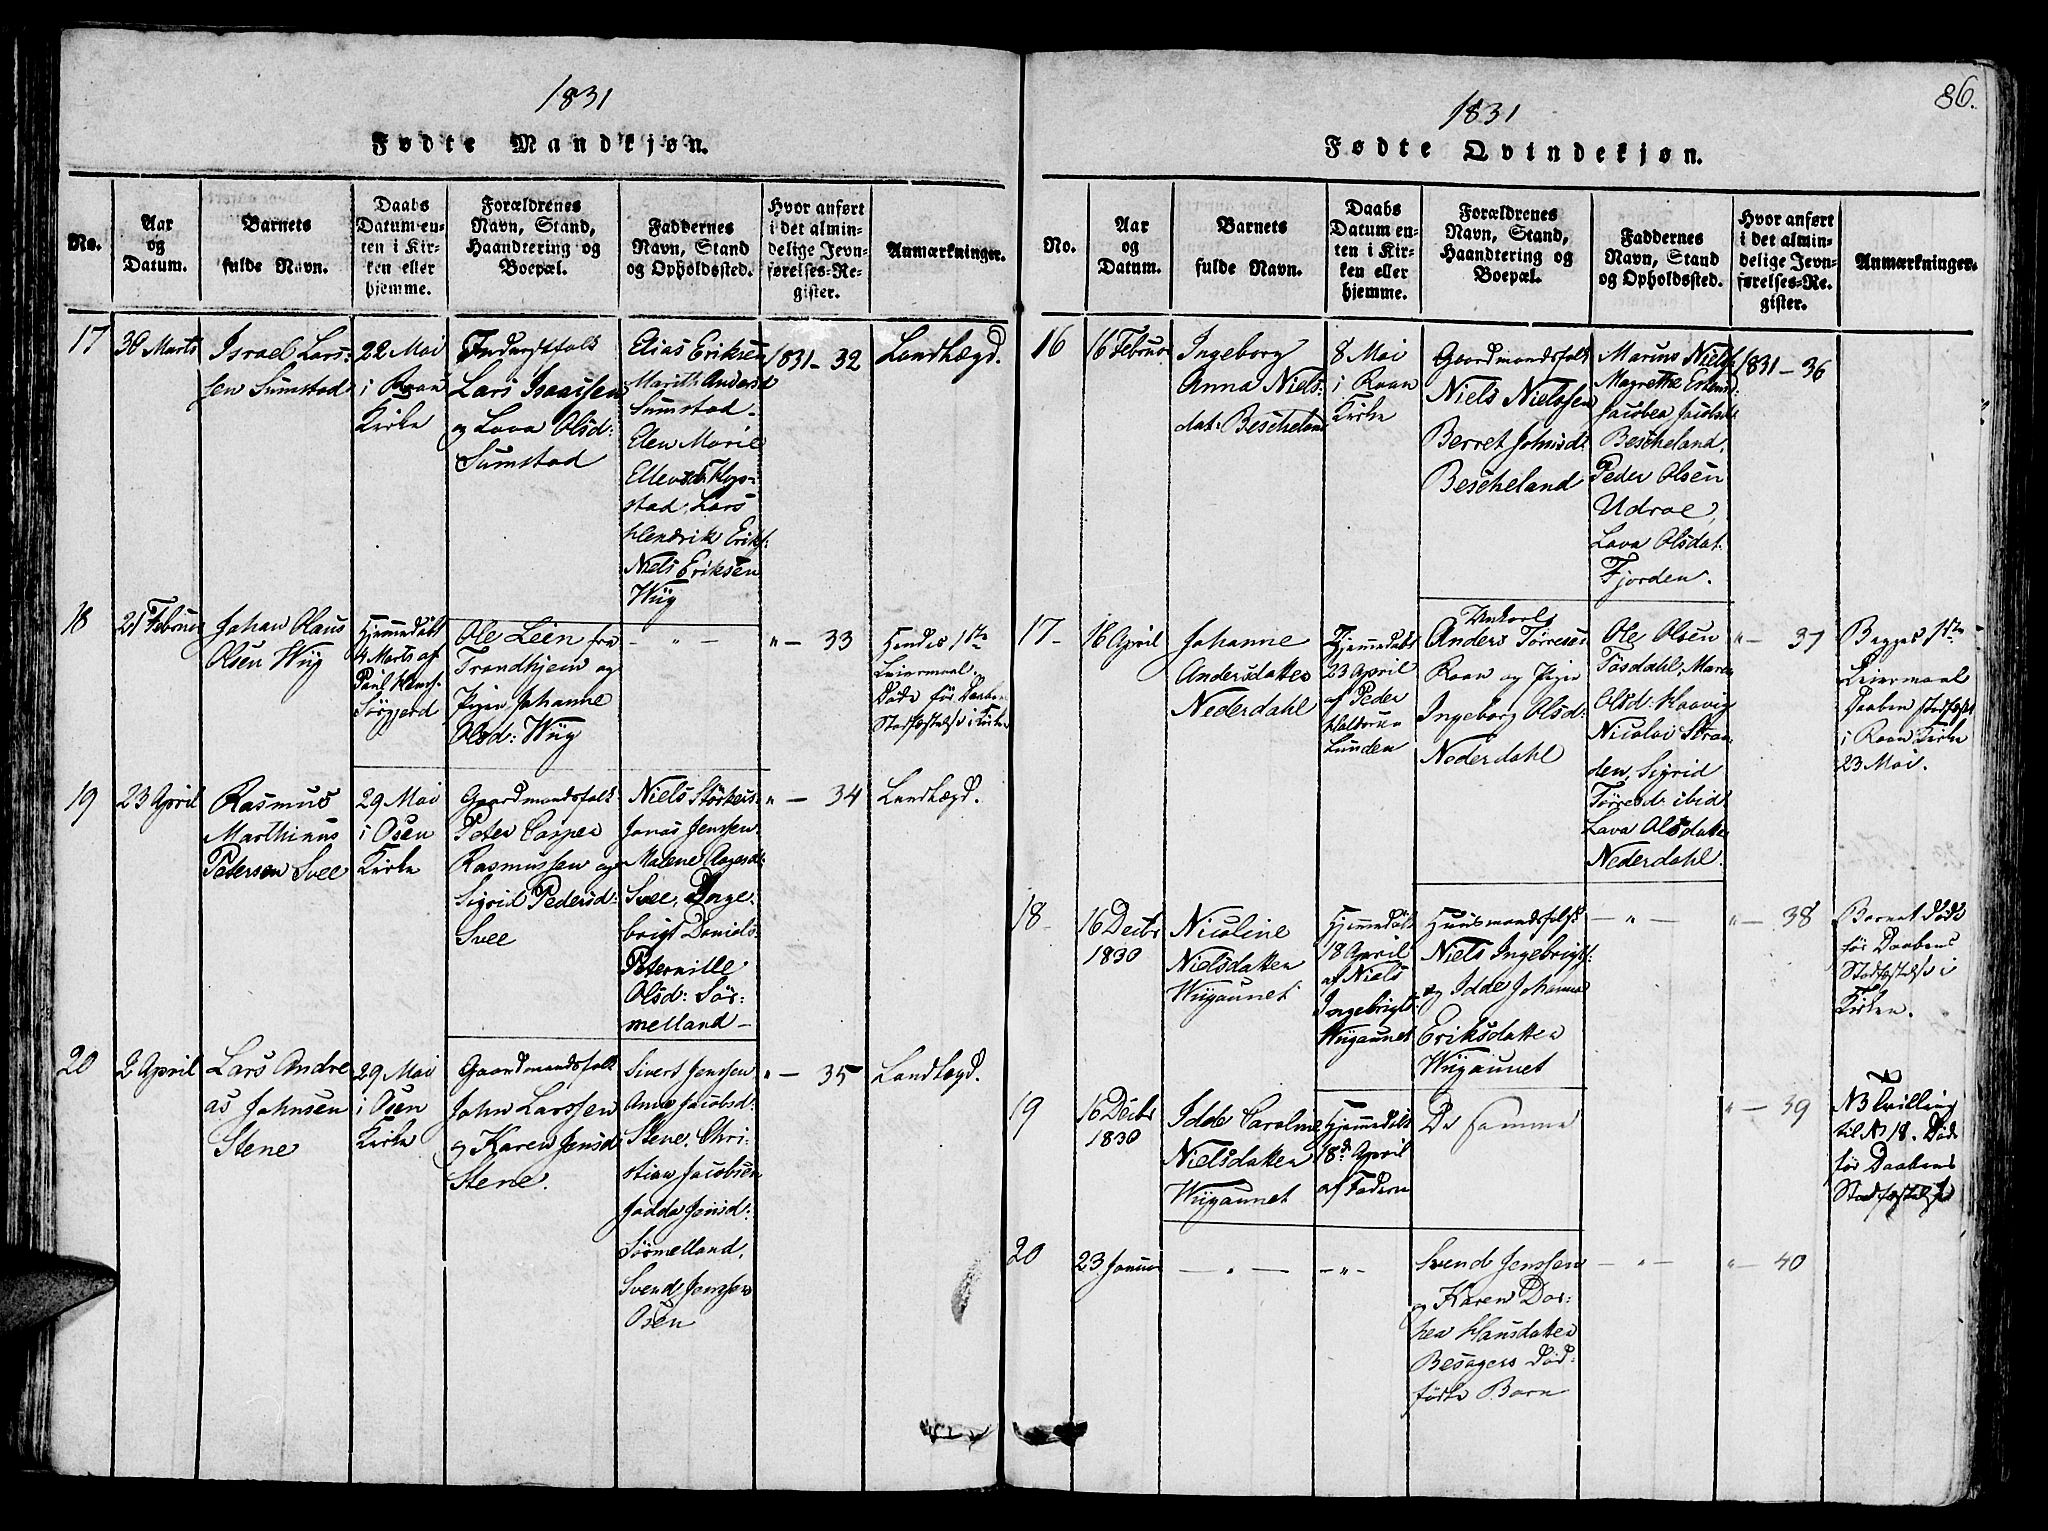 1831
Fødte Mandkjøn.
No.
Aar
og
Datum.
Barnets
fulde Navn.
Daabs
Datum en-
ten i Kir-
ken eller
hjemme.
Forældrenes
Navn, Stand,
Haandtering og
Boepæl.
Faddernes
Navn, Stand
og Opholdssted.
Hvor anført
i det almin-
delige Jevn-
førelses-Re-
gister.
Anmærkninger.
17
30 Marts
Israel Lars-
sen Sumstad
22 Mai
i Roan
Kirke
Lars Isaacsen
og Lava Olsd:
Sumstad
Elias Eriksen
Marith Andersd
Sumstad
Elen Marie
stad, Lars
Hendrik Eriks:
Niels Eriksen
Wiig
1831 - 32
Landlægd.
18
21 Februar
Johan Olaus
Olsen Wiig
Hjemmedøbt
4 Marts af
Paul Hans.
Sørgjerd
Ole Leen fra
Trondhjem og
Pigen Johanne
Olsd: Wiig
- " -
" - 33
Hendes 1ste
Leiermaal.
Døde før Daabens
Stadfæstelse i Kirken
19
23 April
Rasmus
Marthinus
Petersen Svee
29 Mai
i Osen
Kirke
Gaardmandsfolk
Peter Casper
Rasmussen og
Sigrid Pedersd:
Svee
Niels Størkers:
Jonas Jenssen
Malene Aagesd:
Svee, Inge-
brigt Daniels.
Peternille
Olsd: Sør-
melland -
" - 34
Landlægd.
20
2 April
Lars Andre
as Johnsen
Stene
29 Mai
i Osen
Kirke
Gaardmandsfolk
John Larssen
og Karen Jensd
Stene.
Sivert Jenssen
Ane Jacobsd:
Stene, Chri-
stian Jacobsen
Jonsd:
Sørmelland,
Svend Jonssen
Osen
" - 35
Landlægd.
86.
1831
Fødte Qvindekjøn.
No.
Aar
og
Datum.
Barnets
fulde Navn.
Daabs
Datum en-
ten i Kir-
ken eller
hjemme.
Forældrenes
Navn, Stand,
Haandtering og
Boepæl.
Faddernes
Navn, Stand
og Opholdssted.
Hvor anført
i det almin-
delige Jevn-
førelses-Re-
gister.
Anmærkninger.
16
16 Februar
Ingeborg
Anna Niels-
dat: Bescheland
8 Mai
i Roan
Kirke
Gaardmandsfolk
Niels Nielssen
Berret Johnsd:
Bescheland
Marius Niels:
Magrethe
Jacobea Jacobsd:
Bescheland,
Peder Olsen
Udroe,
Lava Olsdat:
Fjorden.
1831 - 36
17
16 April
Johanne
Andersdatter
Nederdahl
Hjemmedøbt
23 April
af Peder
Haldorsen
Lunden
Unkarl
Anders Tørresen
Roan og Pigen
Ingeborg Olsd:
Nederdahl
Ole Olsen
Fosdahl, Maren
Olsd: Haavig
Nicolai Stran-
den, Sigrid
Tørresd: ibid
Lava Olsdatter
Nederdahl.
" - 37
Begges 1ste
Leiermaal
Daaben stadfæstet
i Roan Kirke
23 Mai.
18
16 Decbr
1830
Nicoline
Nielsdatter
Wiigaunet
Hjemmedøbt
18 April
af Niels
Ingebrigts:
Wiigaunet
Huusmandsfolk
Niels Ingebrigts:
og Idde Johanna
Eriksdatter
Wiigaunet
- " -
" - 38
Barnet døde
før Daabens
Stadfæstelse i
Kirken.
19
16 Decbr
1830
Idde Caroline
Nielsdatter
Wiigaunet
Hjemmedøbt
18d: April
af Faderen
De samme
" - 39
NB tvilling
til No 18. Død
før Daabens
Stadfæstelse
20
23 Januar
- " -
- " -
Svend Jenssen
og Karen Dor-
thea Hansdatter
Besagers død-
fødte Barn
- " -
" - 40